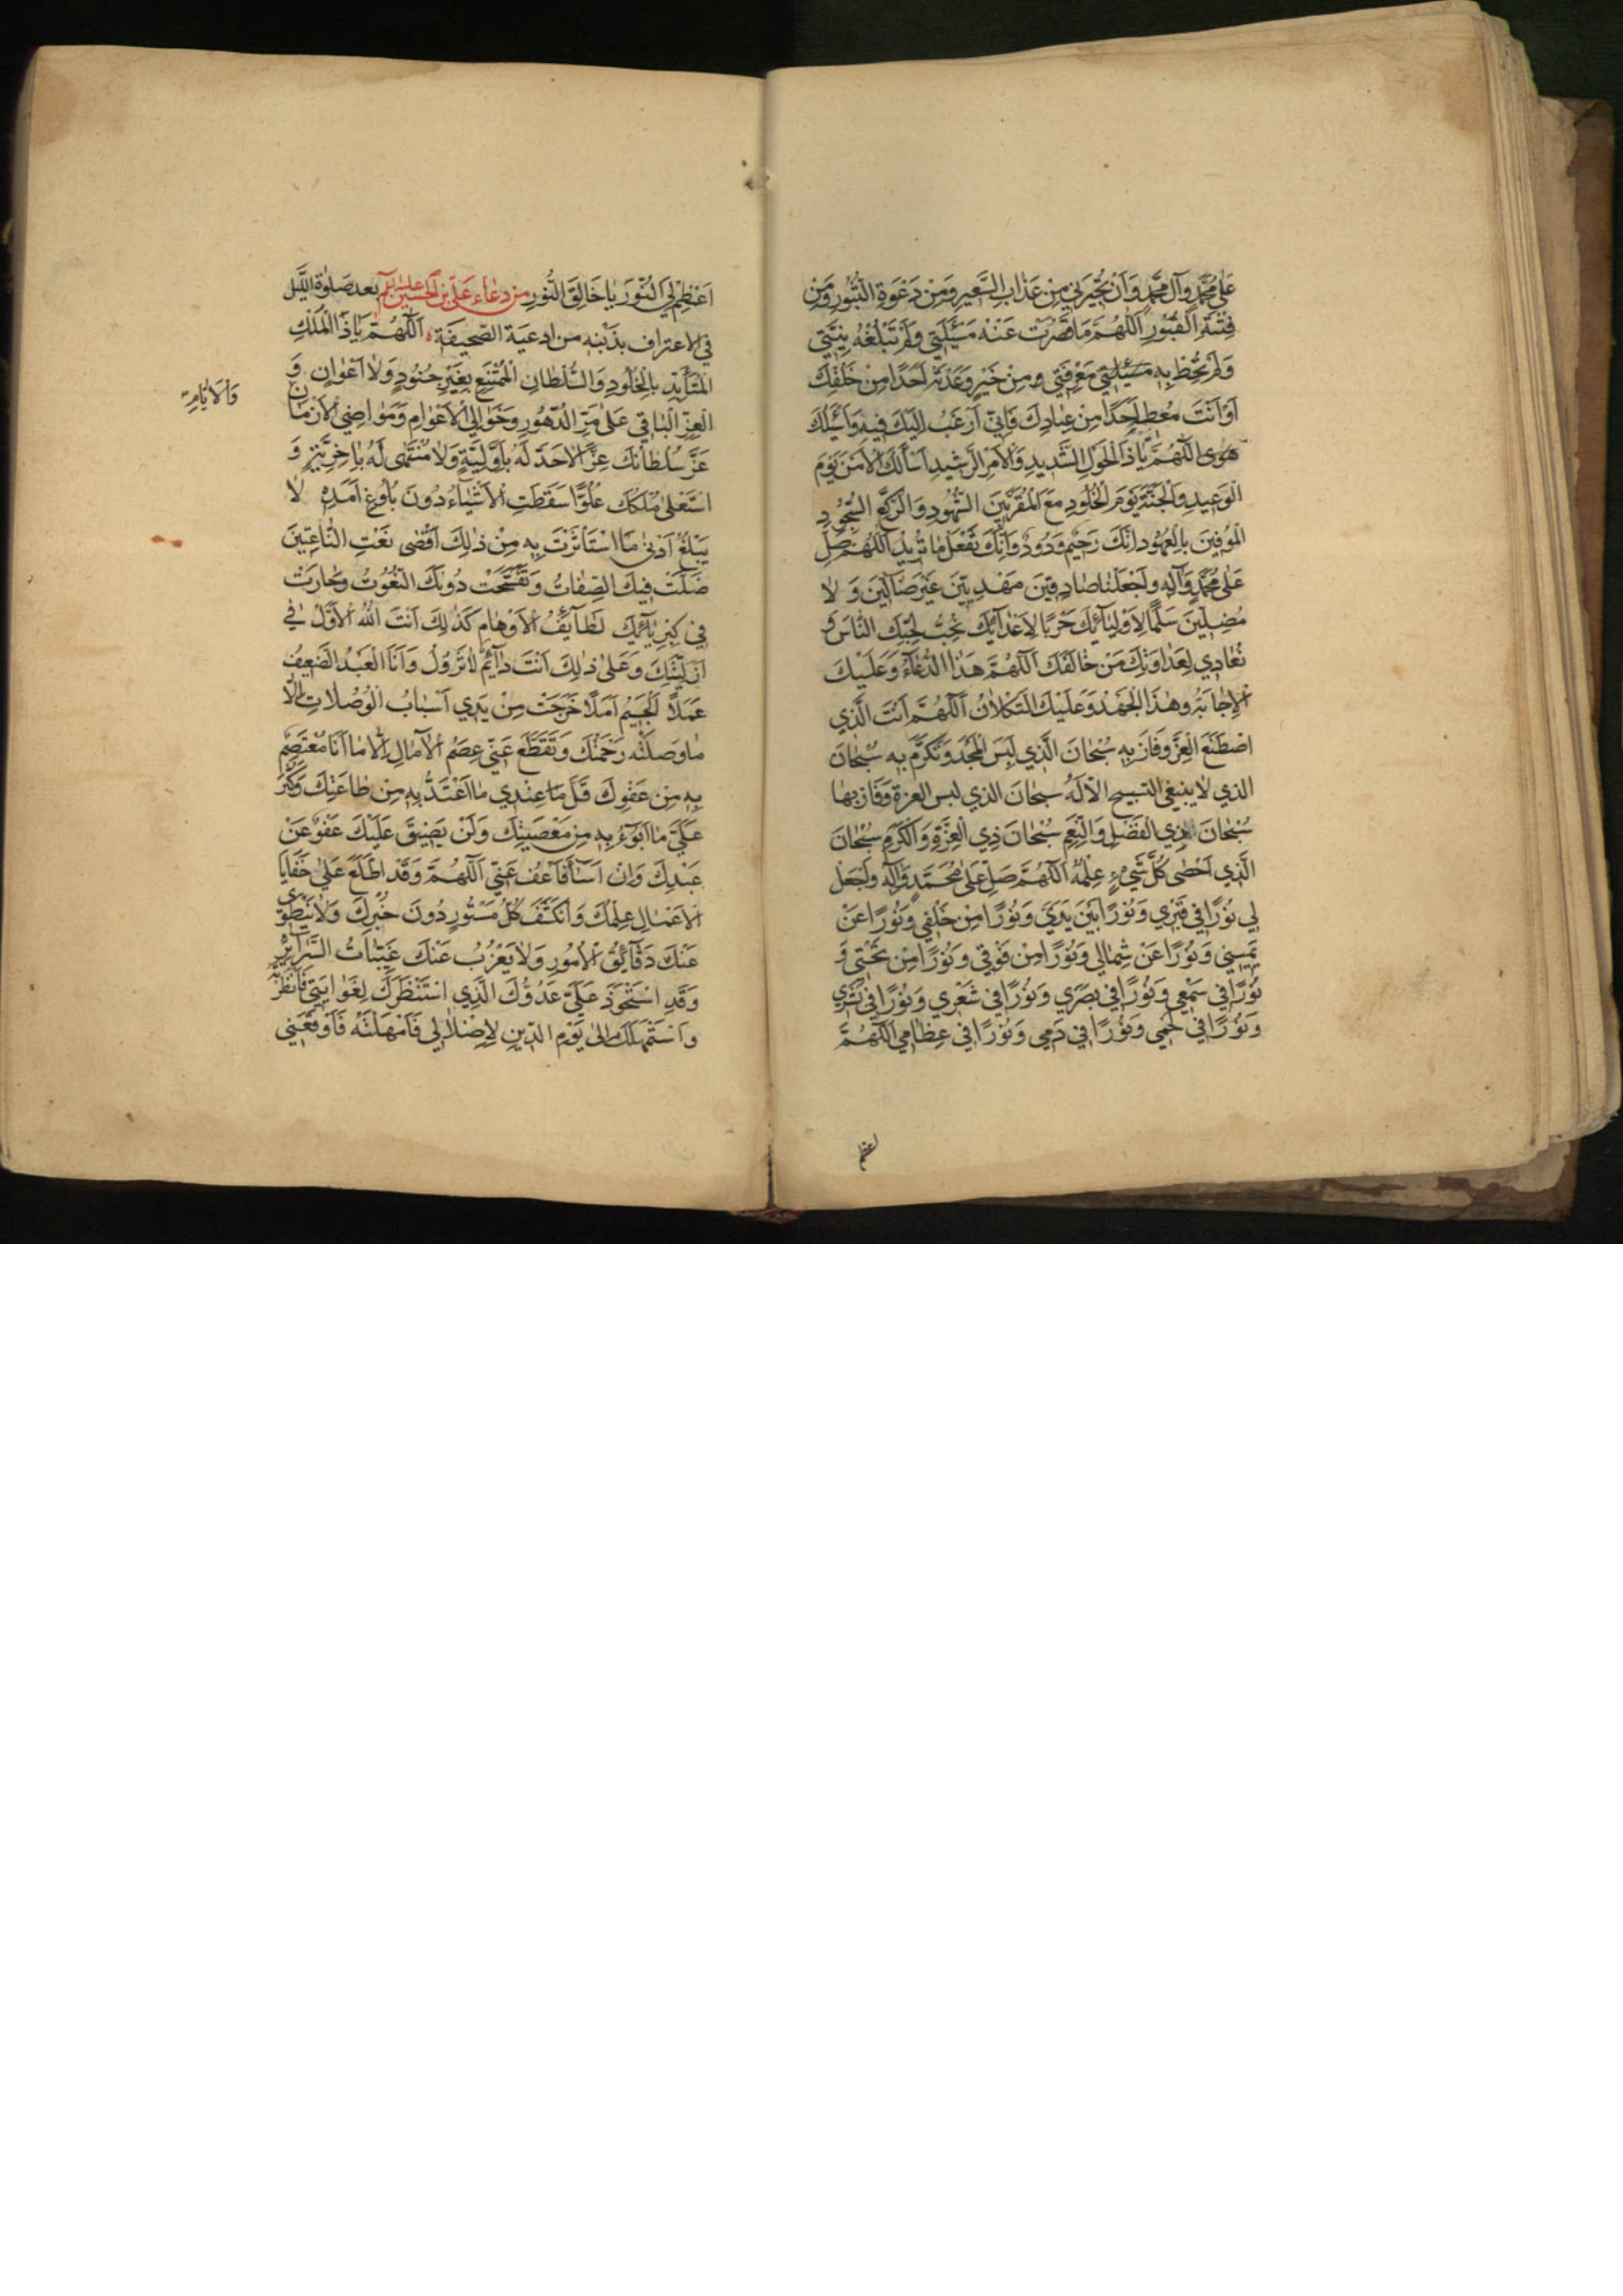 عَلٰى مُحَمَّدٍ وَآلِ مُحَمَّدٍ وَاَنْ تُجِيرَنِي مِنْ عَذَابِ السَّعِيرِ وَمِنْ دَعْوَةِ الثُّبُورِ وَمِنْ
فِتْنَةِ الْقُبُورِ اَللّٰهُمَّ مَا قَصُرَتْ عَنْهُ مَسْئَلَتِي وَلَمْ تَبْلُغْهُ نِيَّتِي
وَلَمْ تُحِطْ بِهِ مَسْئَلَتِي مَعْرِفَتِي مِنْ خَيْرٍ وَعَدْتَهُ اَحَدًا مِنْ خَلْقِكَ
اَوْ اَنْتَ مُعْطِيهِ اَحَدًا مِنْ عِبَادِكَ فَاِنِّي اَرْغَبُ اِلَيْكَ فِيهِ وَاَسْئَلُكَ
اَللّٰهُمَّ يَا ذَا الْحَوْلِ الشَّدِيدِ وَالْاَمْرِ الرَّشِيدِ اَسْأَلُكَ الْاَمْنَ يَوْمَ
الْوَعِيدِ وَالْجَنَّةَ يَوْمَ الْخُلُودِ مَعَ الْمُقَرَّبِينَ الشُّهُودِ وَالرُّكَّعِ السُّجُودِ
الْمُوفِينَ بِالْعُهُودِ اِنَّكَ رَحِيمٌ وَدُودٌ وَاِنَّكَ تَفْعَلُ مَا تُرِيدُ اَللّٰهُمَّ صَلِّ
عَلٰى مُحَمَّدٍ وَآلِهِ وَاجْعَلْنَا صَادِقِينَ مَهْدِيِّينَ غَيْرَ ضَالِّينَ وَلَا
مُضِلِّينَ سِلْمًا لِاَوْلِيَائِكَ حَرْبًا لِاَعْدَائِكَ نُحِبُّ لِحُبِّكَ النَّاسَ وَ
نُعَادِي لِعَدَاوَتِكَ مَنْ خَالَفَكَ اَللّٰهُمَّ هٰذَا الدُّعَاءُ وَعَلَيْكَ
الْاِجَابَةُ وَهٰذَا الْجَهْدُ وَعَلَيْكَ التُّكْلَانُ اَللّٰهُمَّ اَنْتَ الَّذِي
اصْطَنَعَ الْعِزَّ وَفَازَ بِهِ سُبْحَانَ الَّذِي لَبِسَ الْمَجْدَ وَتَكَرَّمَ بِهِ سُبْحَانَ
الذي لا ينبغي التسبيح اِلَّا لَهُ سبحان الذي لبس العزة وَفَازَ بها
سُبْحَانَ ذِي الْفَضْلِ وَالنِّعَمِ سُبْحَانَ ذِي الْعِزَّةِ وَالْكَرَمِ سُبْحَانَ
الَّذِي اَحْصٰى كُلَّ شَيْءٍ عِلْمُهُ اَللّٰهُمَّ صَلِّ عَلٰى مُحَمَّدٍ وَآلِهِ وَاجْعَلْ
لِي نُورًا فِي قَبْرِي وَنُورًا بَيْنَ يَدَيَّ وَنُورًا مِنْ خَلْفِي وَنُورًا عَنْ
يَمِينِي وَنُورًا عَنْ شِمَالِي وَنُورًا مِنْ فَوْقِي وَنُورًا مِنْ تَحْتِي وَ
نُورًا فِي سَمْعِي وَنُورًا فِي بَصَرِي وَنُورًا فِي شَعْرِي وَنُورًا فِي بَشَرِي
وَنُورًا فِي لَحْمِي وَنُورًا فِي دَمِي وَنُورًا فِي عِظَامِي اَللّٰهُمَّ
اعظم
اَعْظِمْ لِيَ النُّورَ يَا خَالِقَ النُّورِ من دعاء علي بن الحسين عليه السلم بعد صلوة الليل
في الاعتراف بذنبه من ادعية الصحيفة اَللّٰهُمَّ يَا ذَا الْمُلْكِ
الْمُتَأَبِّدِ بِالْخُلُودِ وَالسُّلْطَانِ الْمُمْتَنِعِ بِغَيْرِ جُنُودٍ وَلَا اَعْوَانٍ وَ
الْعِزِّ الْبَاقِي عَلٰى مَرِّ الدُّهُورِ وَخَوَالِي الْاَعْوَامِ وَمَوَاضِي الْاَزْمَانِ
وَالْاَيَّامِ
عَزَّ سُلْطَانُكَ عِزًّا لَا حَدَّ لَهُ بِاَوَّلِيَّةٍ وَلَا مُنْتَهٰى لَهُ بِآخِرِيَّةٍ وَ
اسْتَعْلٰى مُلْكُكَ عُلُوًّا سَقَطَتِ الْاَشْيَاءُ دُونَ بُلُوغِ اَمَدِهِ لَا
يَبْلُغُ اَدْنٰى مَا اسْتَأْثَرْتَ بِهِ مِنْ ذٰلِكَ اَقْصٰى نَعْتِ النَّاعِتِينَ
ضَلَّتْ فِيكَ الصِّفَاتُ وَتَفَسَّخَتْ دُونَكَ النُّعُوتُ وَحَارَتْ
فِي كِبْرِيَائِكَ لَطَائِفُ الْاَوْهَامِ كَذٰلِكَ اَنْتَ اللّٰهُ الْاَوَّلُ فِي
اَزَلِيَّتِكَ وَعَلٰى ذٰلِكَ اَنْتَ دَائِمٌ لَا تَزُولُ وَاَنَا الْعَبْدُ الضَّعِيفُ
عَمَلًا الْجَسِيمُ اَمَلًا خَرَجَتْ مِنْ يَدِي اَسْبَابُ الْوُصُلَاتِ اِلَّا
مَا وَصَلَتْهُ رَحْمَتُكَ وَتَقَطَّعَ عَنِّي عِصَمُ الْآمَالِ اِلَّا مَا اَنَا مُعْتَصِمٌ
بِهِ مِنْ عَفْوِكَ قَلَّ مَا عِنْدِي مَا اَعْتَدُّ بِهِ مِنْ طَاعَتِكَ وَكَثُرَ
عَلَيَّ مَا اَبُوءُ بِهِ مِنْ مَعْصِيَتِكَ وَلَنْ يَضِيقَ عَلَيْكَ عَفْوٌ عَنْ
عَبْدِكَ وَاِنْ اَسَاءَ فَاعْفُ عَنِّي اَللّٰهُمَّ وَقَدْ اطَّلَعَ عَلٰى خَفَايَا
الْاَعْمَالِ عِلْمُكَ وَانْكَشَفَ كُلُّ مَسْتُورٍ دُونَ خُبْرِكَ وَلَا يَنْطَوِي
عَنْكَ دَقَائِقُ الْاُمُورِ وَلَا يَعْزُبُ عَنْكَ غَيِّبَاتُ السَّرَائِرِ
وَقَدِ اسْتَحْوَذَ عَلَيَّ عَدُوُّكَ الَّذِي اسْتَنْظَرَكَ لِغَوَايَتِي فَاَنْظَرْتَهُ
وَاسْتَمْهَلَكَ اِلٰى يَوْمِ الدِّينِ لِاِضْلَالِي فَاَمْهَلْتَهُ فَاَوْقَعَنِي